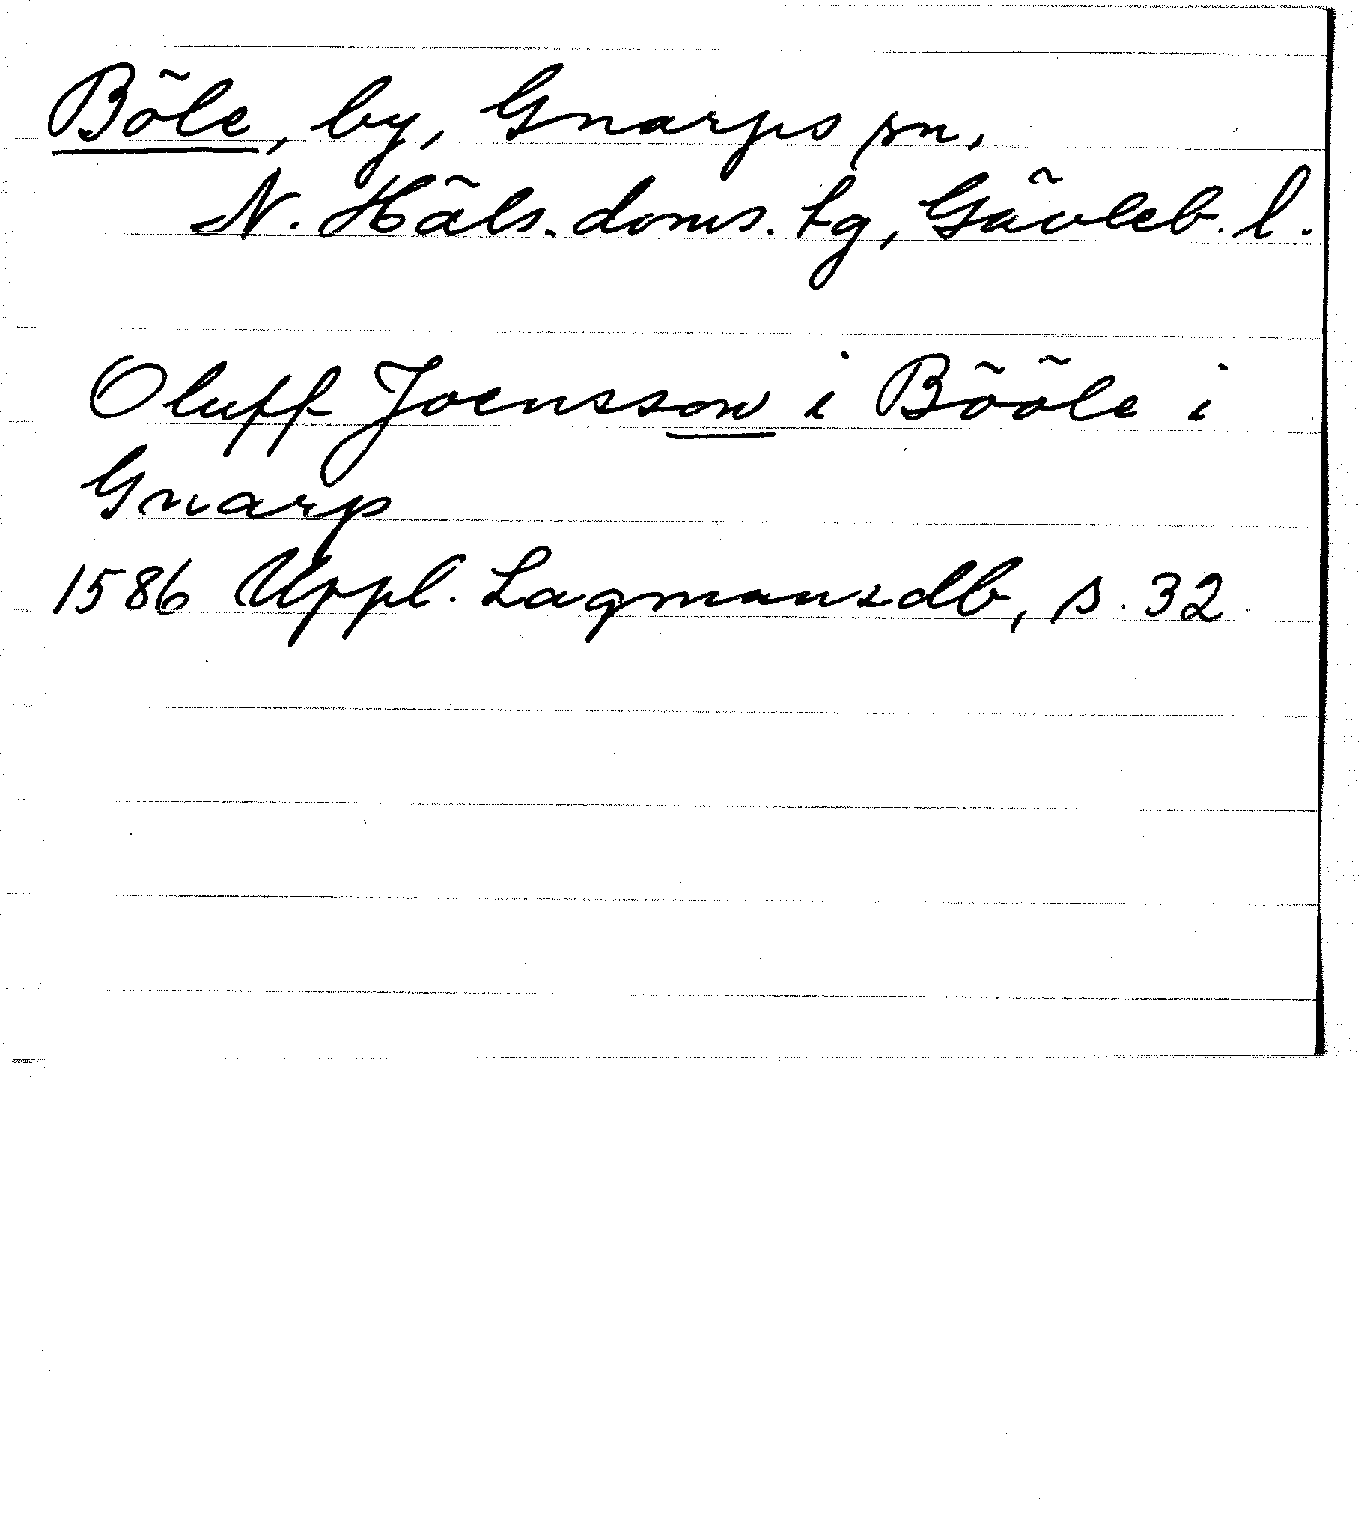 Böle, by, Gnarps sn,
N. Häls. doms. tg, Gävleb. l.
Oluff Joensson i Bööle i
Gnarp
1586 Uppl. Lagmansdb, s. 32